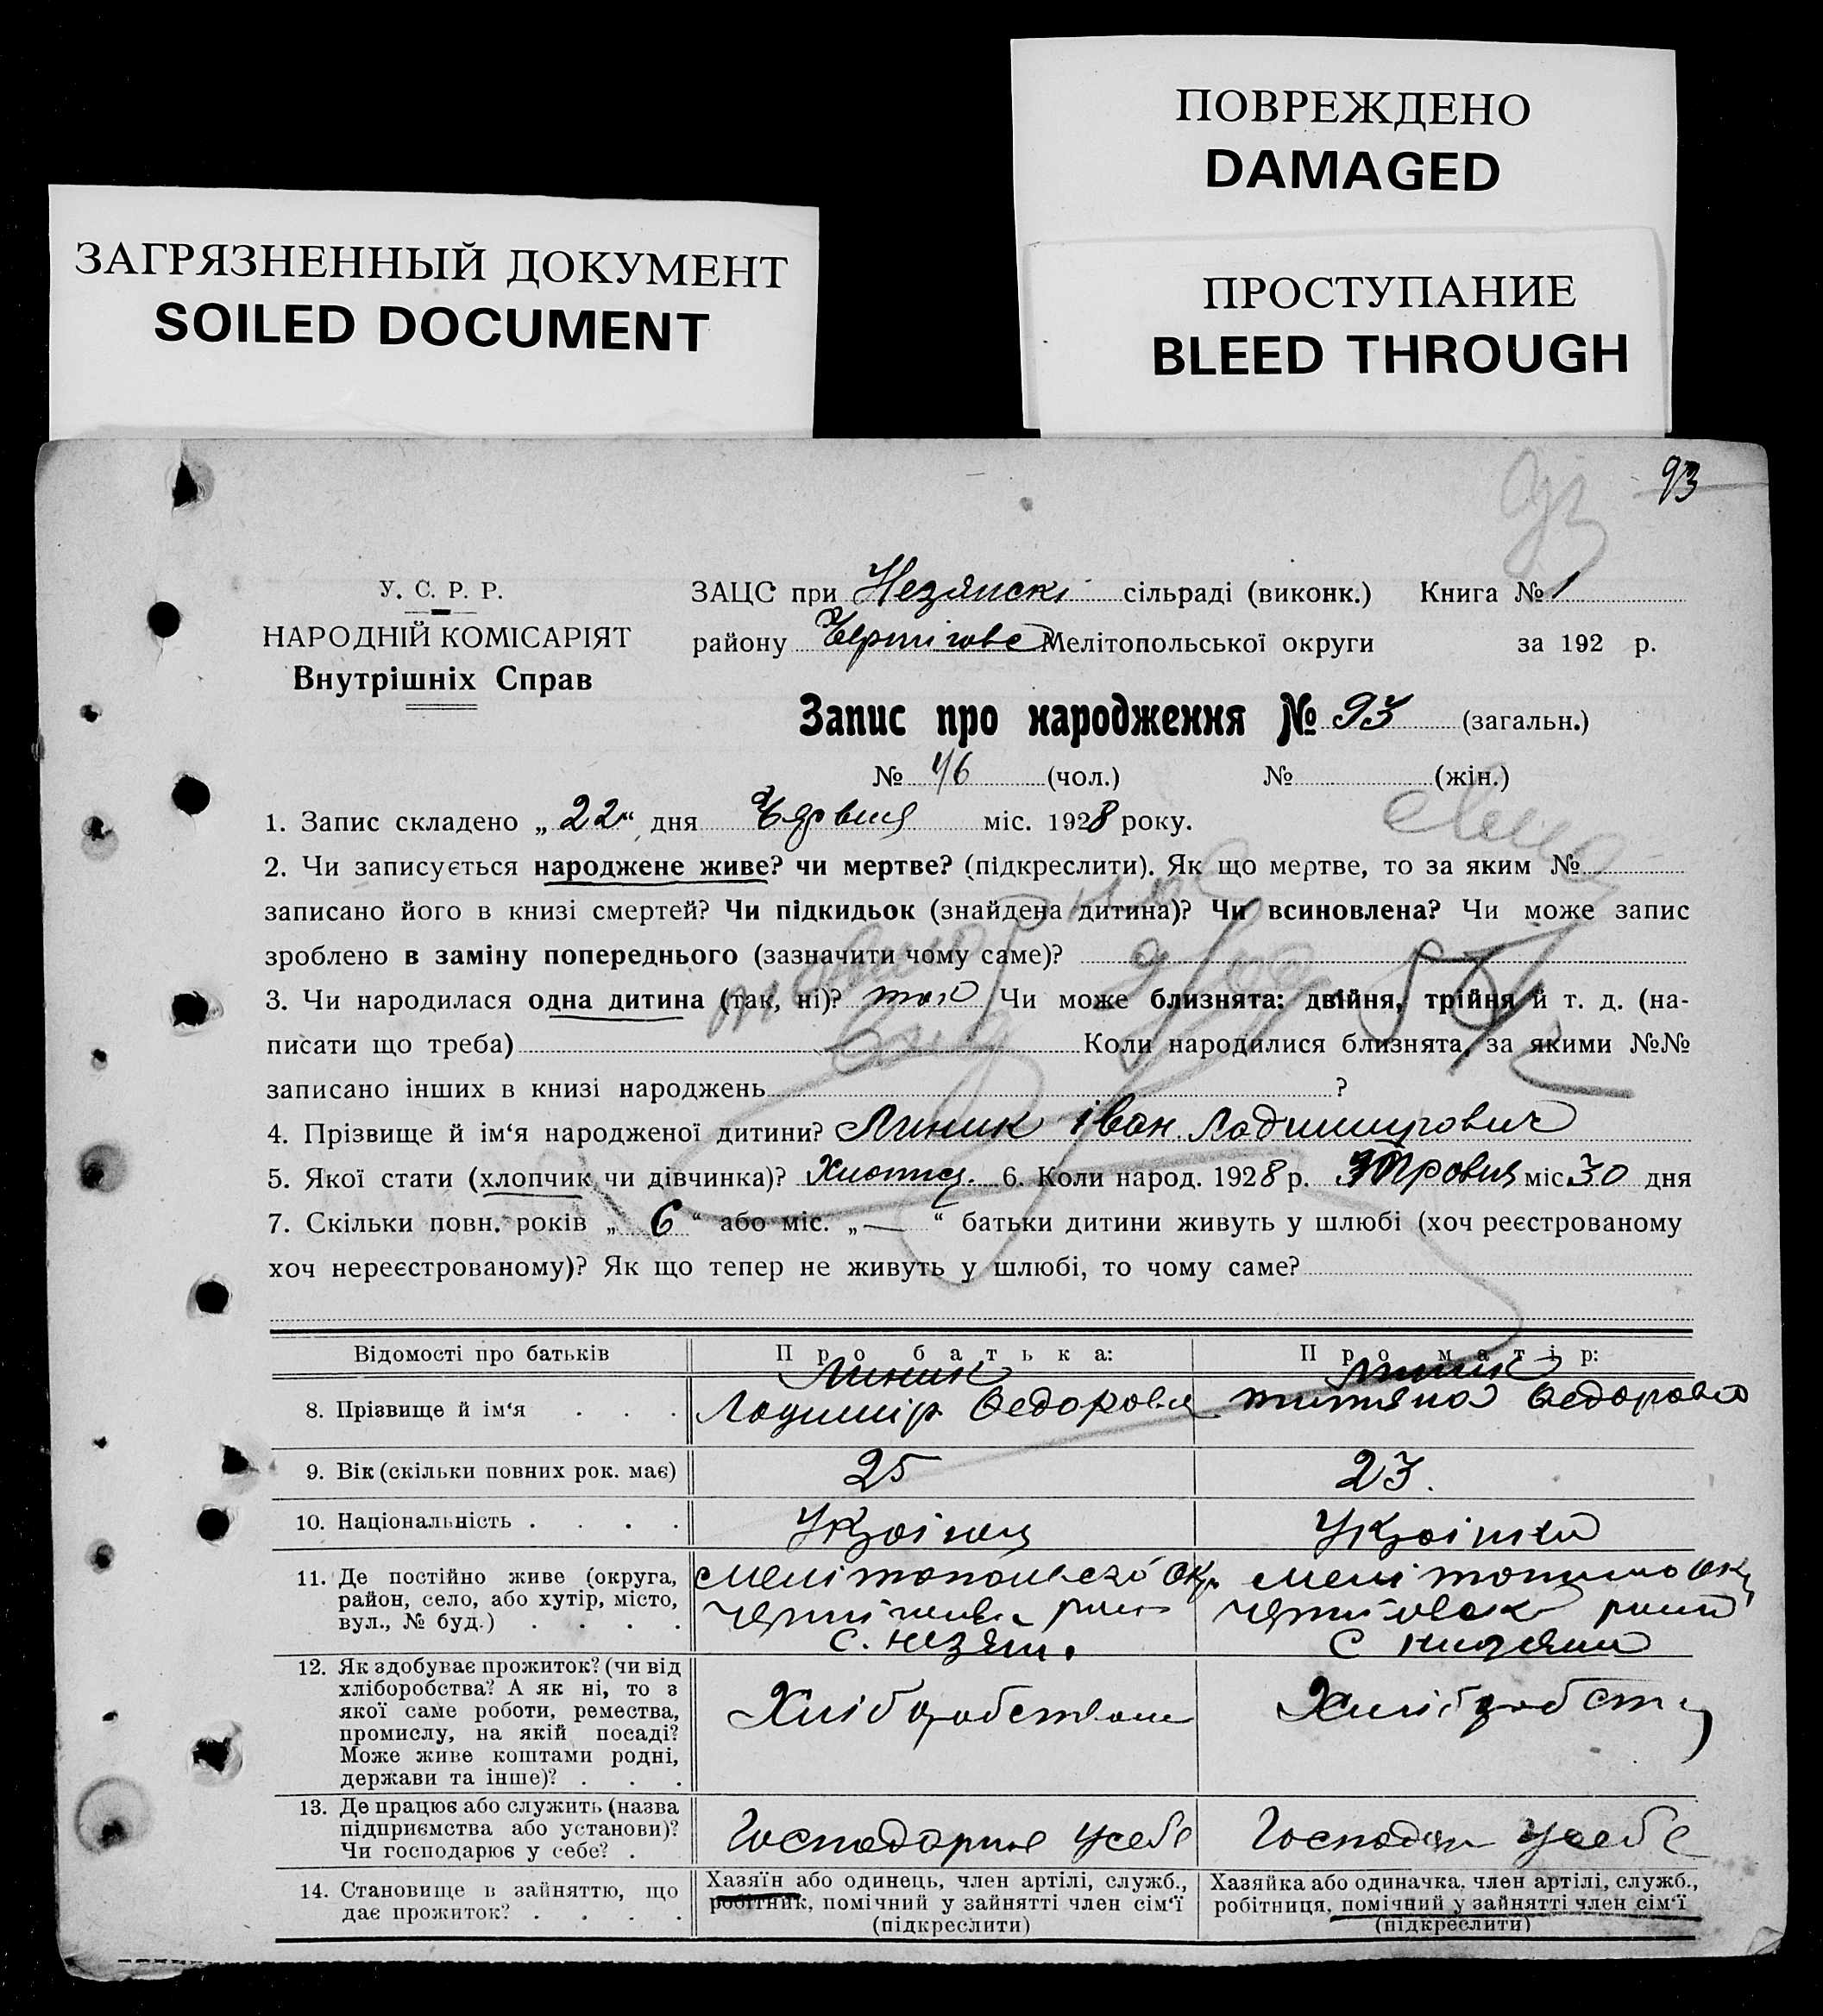 ПОВРЕЖДЕНО
DAMAGED
ЗАГРЯЗНЕННЫЙ ДОКУМЕНТ
SOILED DOCUMENT
ПРОСТУПАНИЕ
BLEED THROUGH
93
93
У. С. Р. Р.
НАРОДНІЙ КОМІСАРІЯТ
Внутрішніх Справ
ЗАЦС при Незянскі сільраді (виконк.) Книга № 1
району Мелітопольської округи за 192 р.
Запис про народження № 93 (загальн.)
№ 46 (чол.) № (жін.)
1. Запис складено „ 22 “ дня міс. 1928 року.
2. Чи записується народжене живе? чи мертве? (підкреслити). Як що мертве, то за яким №
записано його в книзі смертей? Чи підкидьок (знайдена дитина)? Чи всиновлена? Чи може запис
зроблено в заміну попереднього (зазначити чому саме)?
3. Чи народилася одна дитина (так, ні)? так Чи може близнята: двійня, трійня й т. д. (на-
писати що треба) Коли народилися близнята, за якими №№
записано інших в книзі народжень ?
4. Прізвище й ім‘я народженої дитини? Линик Іван Ладимирович
5. Якої стати (хлопчик чи дівчинка)? 6. Коли народ. 1928 р. міс. 30 дня
7. Скільки повн. років „ 6 “ або міс. „ — “ батьки дитини живуть у шлюбі (хоч реєстрованому
хоч нереєстрованому)? Як що тепер не живуть у шлюбі, то чому саме?
Відомості про батьків Про батька: Про матір:
Линик Линик
8. Прізвище й ім‘я . . . Ладимір Федорович Федоровна
9. Вік (скільки повних рок. має) 25 23.
10. Національність . . . . Українец Українка
11. Де постійно живе (округа,
район, село, або хутір, місто,
вул., № буд.) . . . .
12. Як здобуває прожиток? (чи від
хліборобства? А як ні, то з
якої саме роботи, ремества,
промислу, на якій посаді?
Може живе коштами родні,
держави та інше)? . . .
13. Де працює або служить (назва
підприємства або установи)?
Чи господарює у себе? . Господарює усебе усебе
14. Становище в зайняттю, що
дає прожиток? . . . .
Хазяїн або одинець, член артілі, служб.,
робітник, помічний у зайнятті член сім‘ї
(підкреслити)
Хазяйка або одиначка, член артілі, служб.,
робітниця, помічний у зайнятті член сім‘ї
(підкреслити)